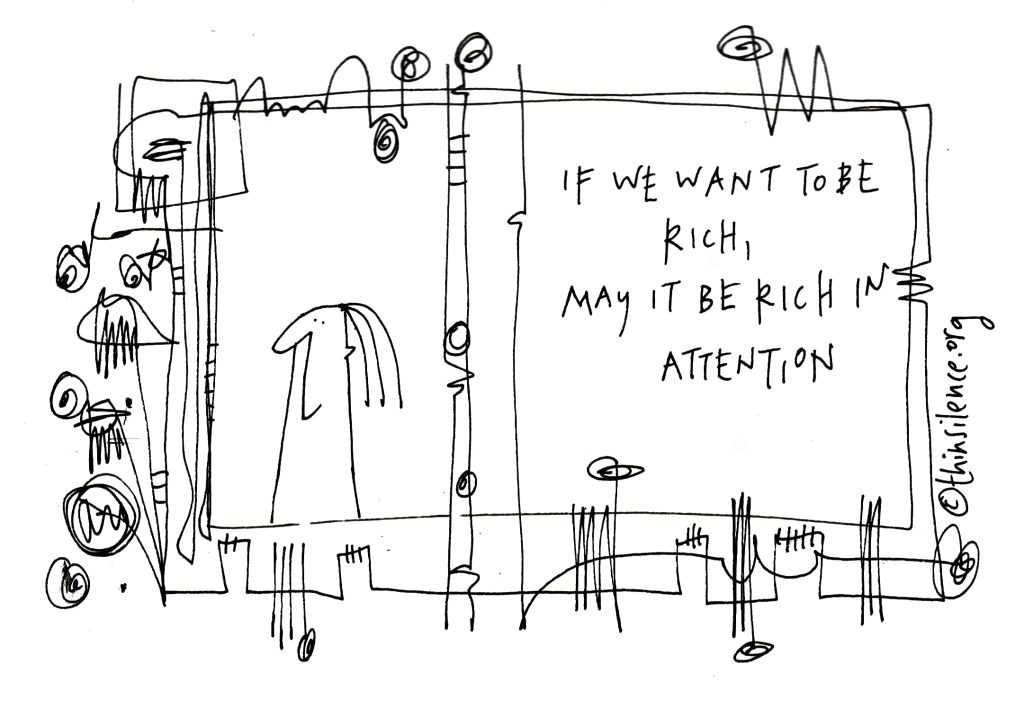 IF WE WANT TO BE
RICH,
MAY IT BE RICH IN
ATTENTION
©thinsilence.org